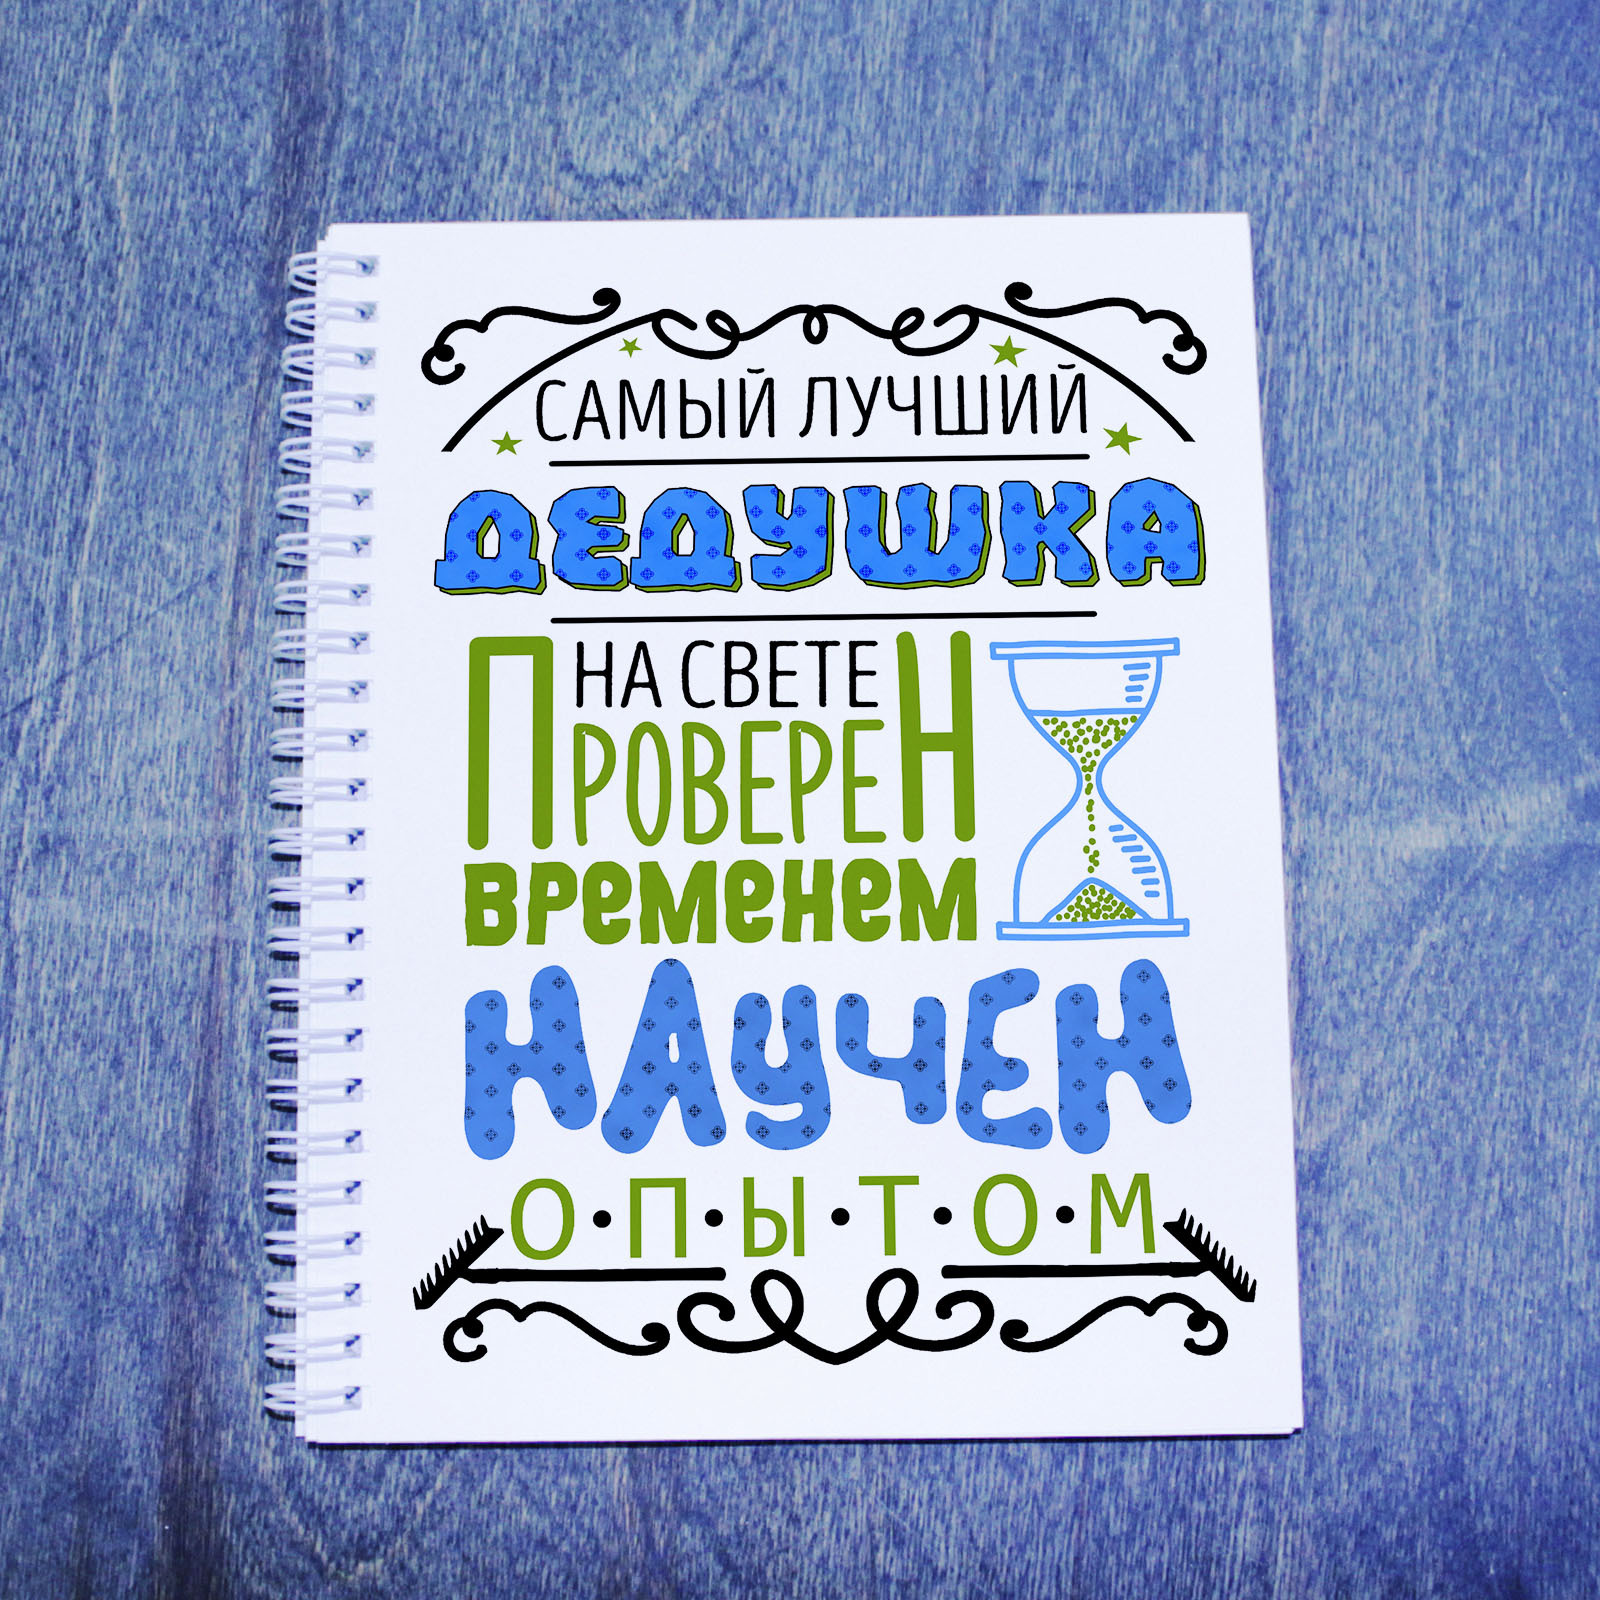 САМЫЙ ЛУЧШИЙ
ДЕДУШКА
НА СВЕТЕ
ПРОВЕРЕН
ВРЕМЕНЕМ
НАУЧЕН
О•П•Ы•Т•О•М